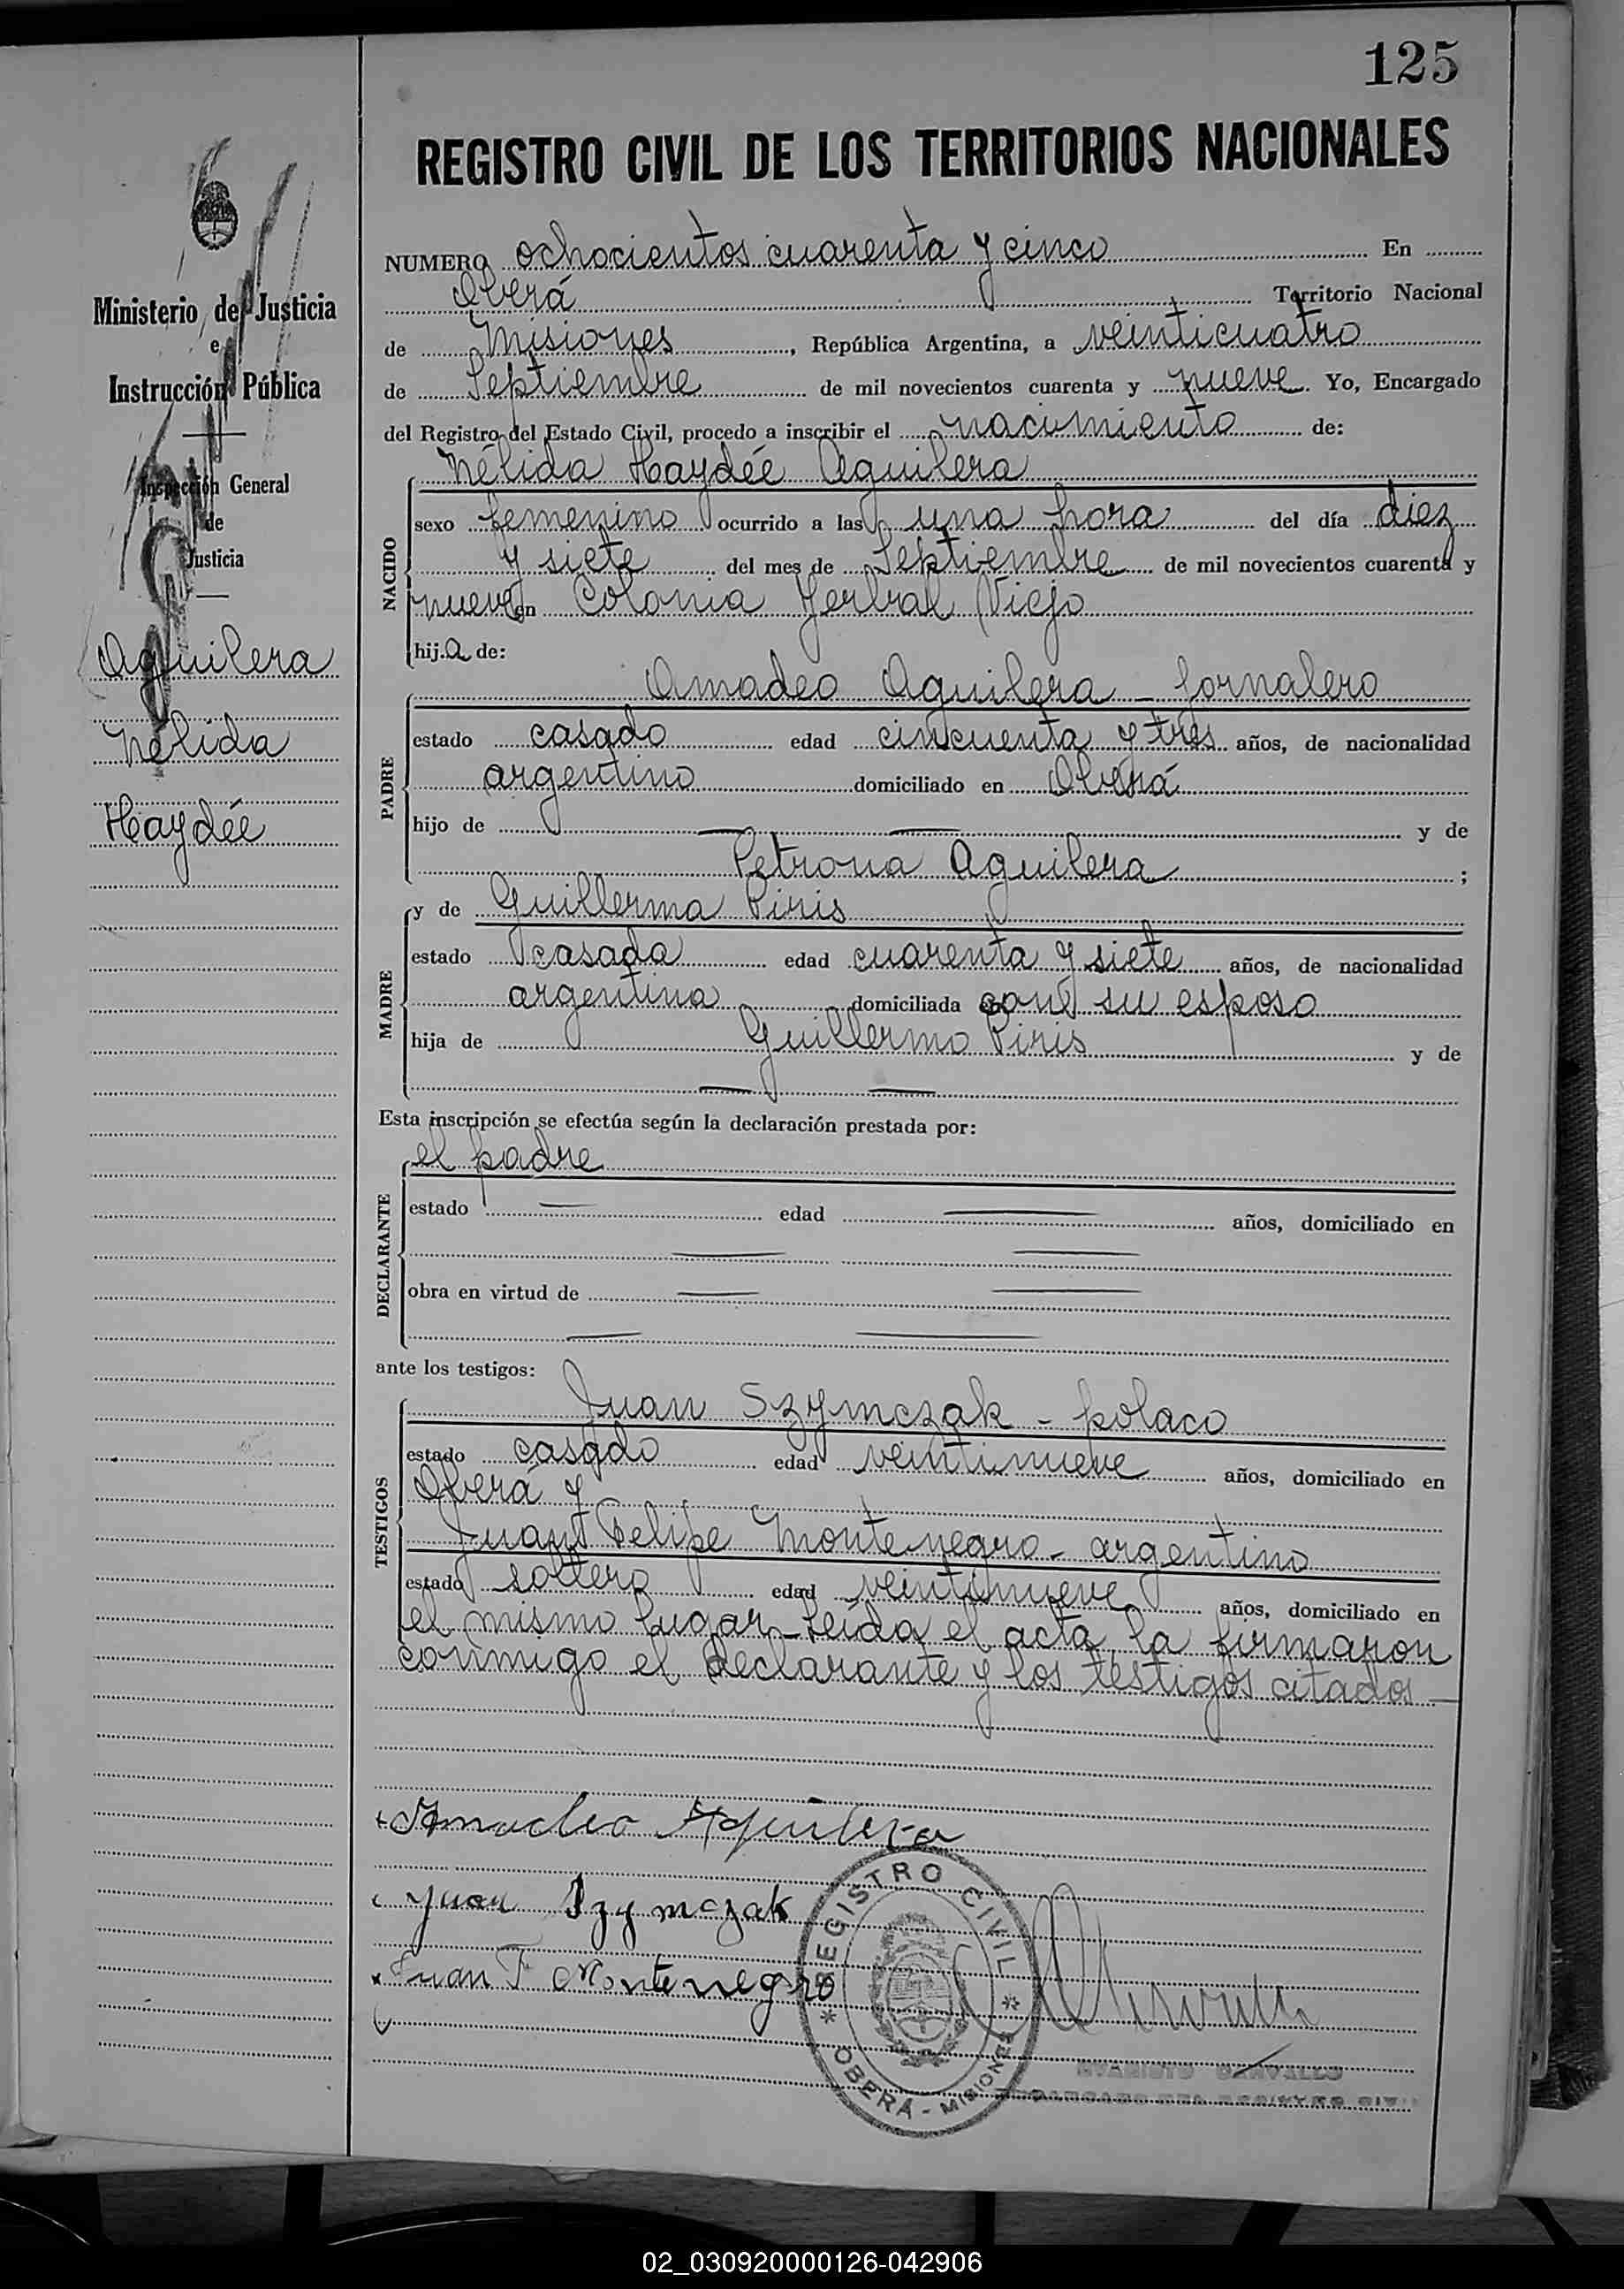 125
REGISTRO CIVIL DE LOS TERRITORIOS NACIONALES
Ministerio de Justicia
e
Instrucción Pública
Inspección General
de
Justicia
Aguilera
Nélida
Haydée
NUMERO ochocientos cuarenta y cinco En
Oberá Territorio Nacional
de Misiones, República Argentina, a veinticuatro
de Septiembre de mil novecientos cuarenta y nueve. Yo, Encargado
del Registro del Estado Civil, procedo a inscribir el nacimiento de:
Nélida Haydée Aguilera
NACIDO
sexo femenino ocurrido a las una hora del día diez
y siete del mes de Septiembre de mil novecientos cuarenta y
nueve en Colonia Yerbal Viejo
hija de:
Amadeo Aguilera - Jornalero
PADRE
estado casado edad cincuenta y tres años, de nacionalidad
argentino domiciliado en Oberá
hijo de — — y de
Petrona Aguilera ;
y de Guillerma Piris
MADRE
estado casada edad cuarenta y siete años, de nacionalidad
argentina domiciliada con su esposo
hija de Guillermo Piris y de
— —
Esta inscripción se efectúa según la declaración prestada por:
el padre
DECLARANTE
estado — edad — años, domiciliado en
— —
obra en virtud de — —
— —
ante los testigos:
Juan Szymczak - polaco
TESTIGOS
estado casado edad veintinueve años, domiciliado en
Oberá y
Juan Felipe Montenegro - argentino
estado soltero edad veintinueve años, domiciliado en
el mismo lugar - Leída el acta, la firmaron
conmigo el declarante y los testigos citados —
Amadeo Aguilera
Juan Szymczak
Juan F Montenegro
REGISTRO CIVIL
OBERÁ - MISIONES
EVARISTO CARVALLO
ENCARGADO DEL REGISTRO CIVIL
02_030920000126-042906